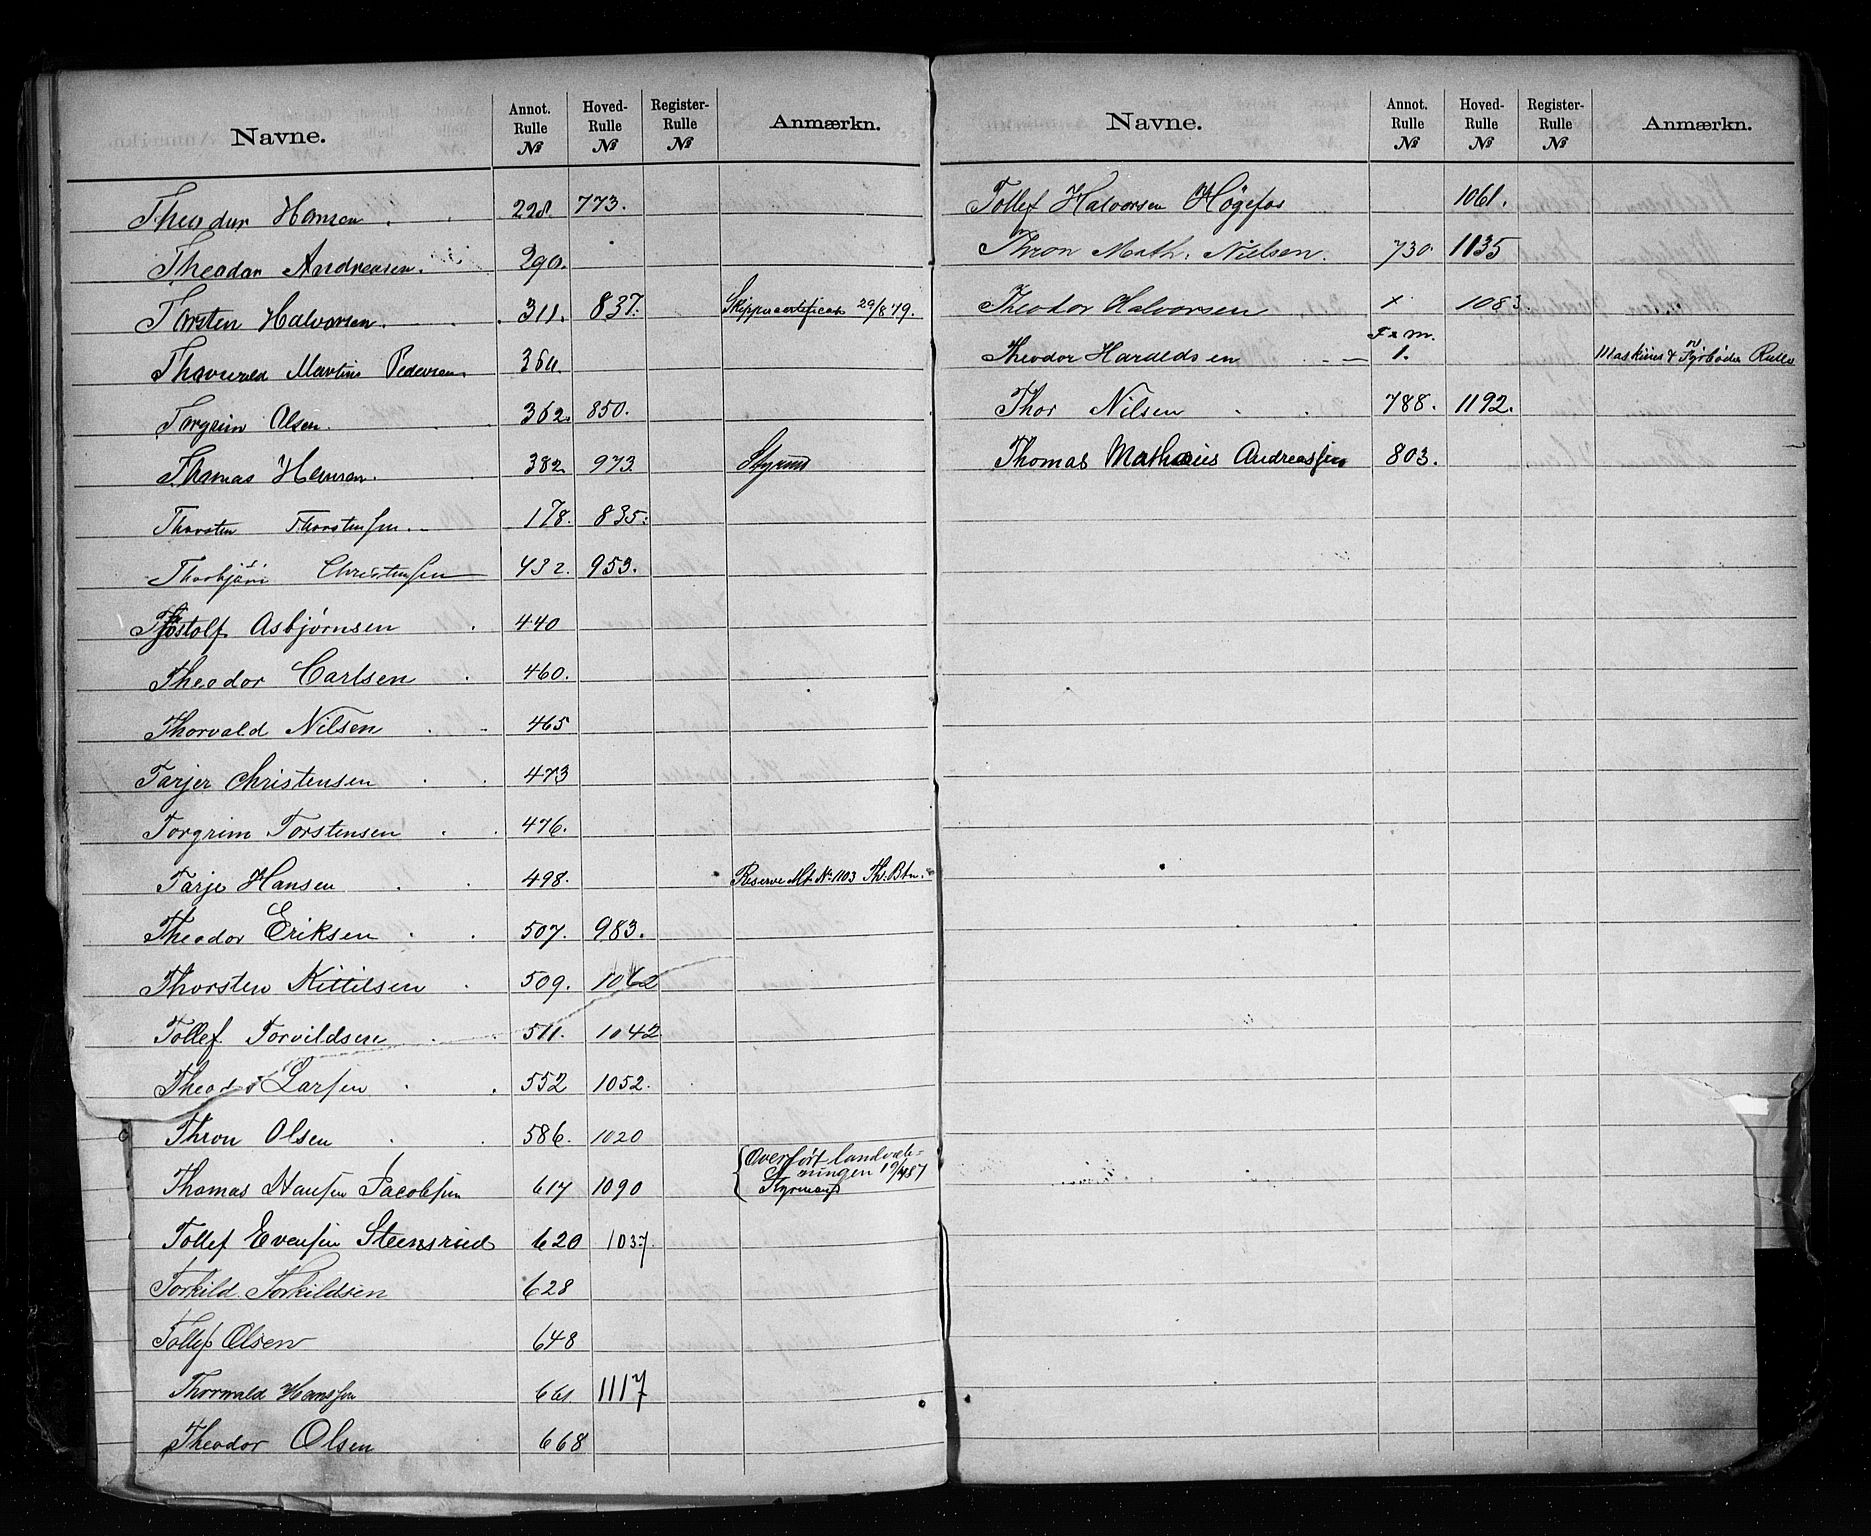 Navne. Annot. Rulle № Hoved-Rulle № Register-Rulle № Anmærkn.
Theodor Hansen 228. 773.
Theodor Andreasen. 290.
Torsten Halvorsen. 311. 837. 29/8 79.
Thorvald Martin Pedersen
Torgrim Olsen. 362. 850.
Thomas Hansen. 382. 973
Thorsten Thorstenssen. 178. 835.
Thorbjörn Christenssen 432. 953.
Tjøstolf Asbjørnsen 440
Theodor Carlsen 460.
Thorvald Nilsen 465
Tarjer Christensen 473
Torgrim Torstensen 476.
Tarje Hansen 498. Reserve Mt. № 1103 Th. Btn.
Theodor Eriksen 507. 983.
Thorsten Kittilsen 509. 1062
Tollef Torvildsen 511. 1042
Theodor Larssen 552 1052.
Thron Olsen 586. 1020
Thomas Hanssen Jacobssen 617 1090 Overført landvær-
Tollef Evenssen Steensrud 620 1037.
Torkild Torkildsen 628
Tollef Olsen 648
Thorwald Hanssen 661 1117
Theodor Olsen 668
Navne. Annot. Rulle № Hoved-Rulle № Register-Rulle № Anmærkn.
Tollef Halvorsen Høgefos 1061.
Thron Math. Nielsen. 730. 1135
Theodor Halvorsen x 1083
F & M.
Theodor Haraldsen 1. Maskinist & Fyrbøder Rulle
Thor Nilsen 788. 1192.
Thomas Mathæus Andreassen 803.